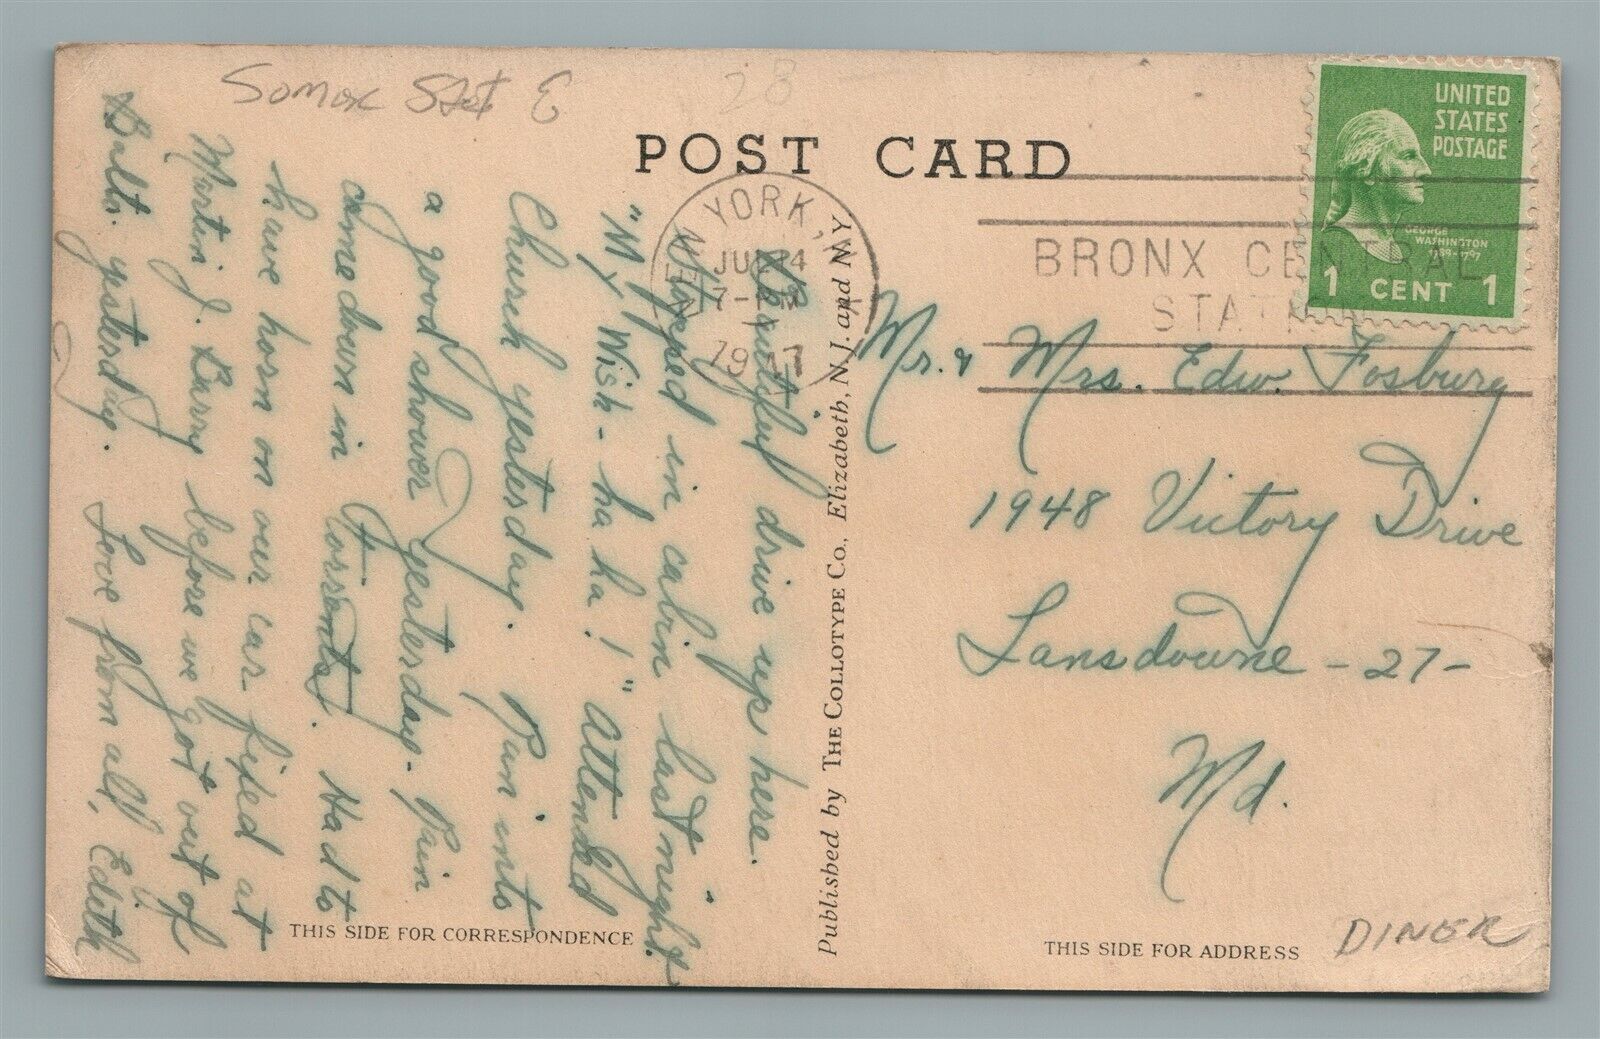 POST CARD
UNITED
STATES
POSTAGE
GEORGE
WASHINGTON
1789-1797
1 CENT 1
NEW YORK, N.Y.
JUL 14
7-PM
1947
BRONX CENTRAL
STATION
Beautiful drive up here.
Stopped in cabin last night.
"My Wish - ha ha!" Attended
Church yesterday. Ran into
a good shower yesterday. Rain
came down in torrents. Had to
have horn on our car fixed at
Martin J. Barry before we got out of
Balto. yesterday. Love from all, Edith
Mr. & Mrs. Edw. Fosburg
1948 Victory Drive
Lansdowne - 27 -
Md.
Published by THE COLLOTYPE CO., Elizabeth, N.J. and N.Y.
THIS SIDE FOR CORRESPONDENCE
THIS SIDE FOR ADDRESS
DINER
28